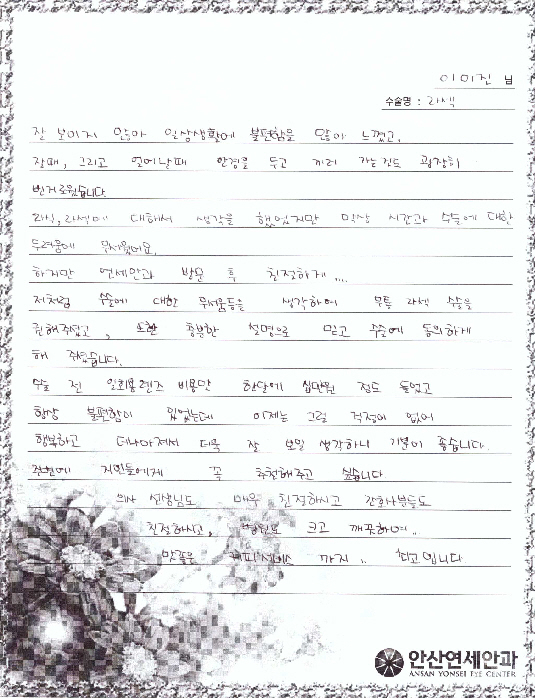 이미진 님
수술명 : 라섹
잘 보이지 않아 일상생활에 불편함을 많이 느꼈고,
잘때, 그리고 일어날때 안경을 두고 끼러 가는것도 굉장히
번거로웠습니다.
라식,라섹에 대해서 생각을 했었지만 막상 시간과 수술에 대한
두려움에 무서웠어요.
하지만 연세안과 방문 후 친절하게 ....
저처럼 수술에 대한 무서움등을 생각하여 무통 라섹 수술을
권해주셨고, 또한 충분한 설명으로 믿고 수술에 동의하게
해 주셨습니다.
수술 전 일회용렌즈 비용만 한달에 십만원 정도 들었고
항상 불편함이 있었는데 이제는 그럴 걱정이 없어
행복하고 더나아져서 더욱 잘 보일 생각하니 기분이 좋습니다.
주변에 지인들에게 꼭 추천해주고 싶습니다.
의사 선생님도 매우 친절하시고 간호사분들도
친절하시고, 병원도 크고 깨끗하며..
맛좋은 커피서비스 까지.. 최고입니다.
안산연세안과
ANSAN YONSEI EYE CENTER